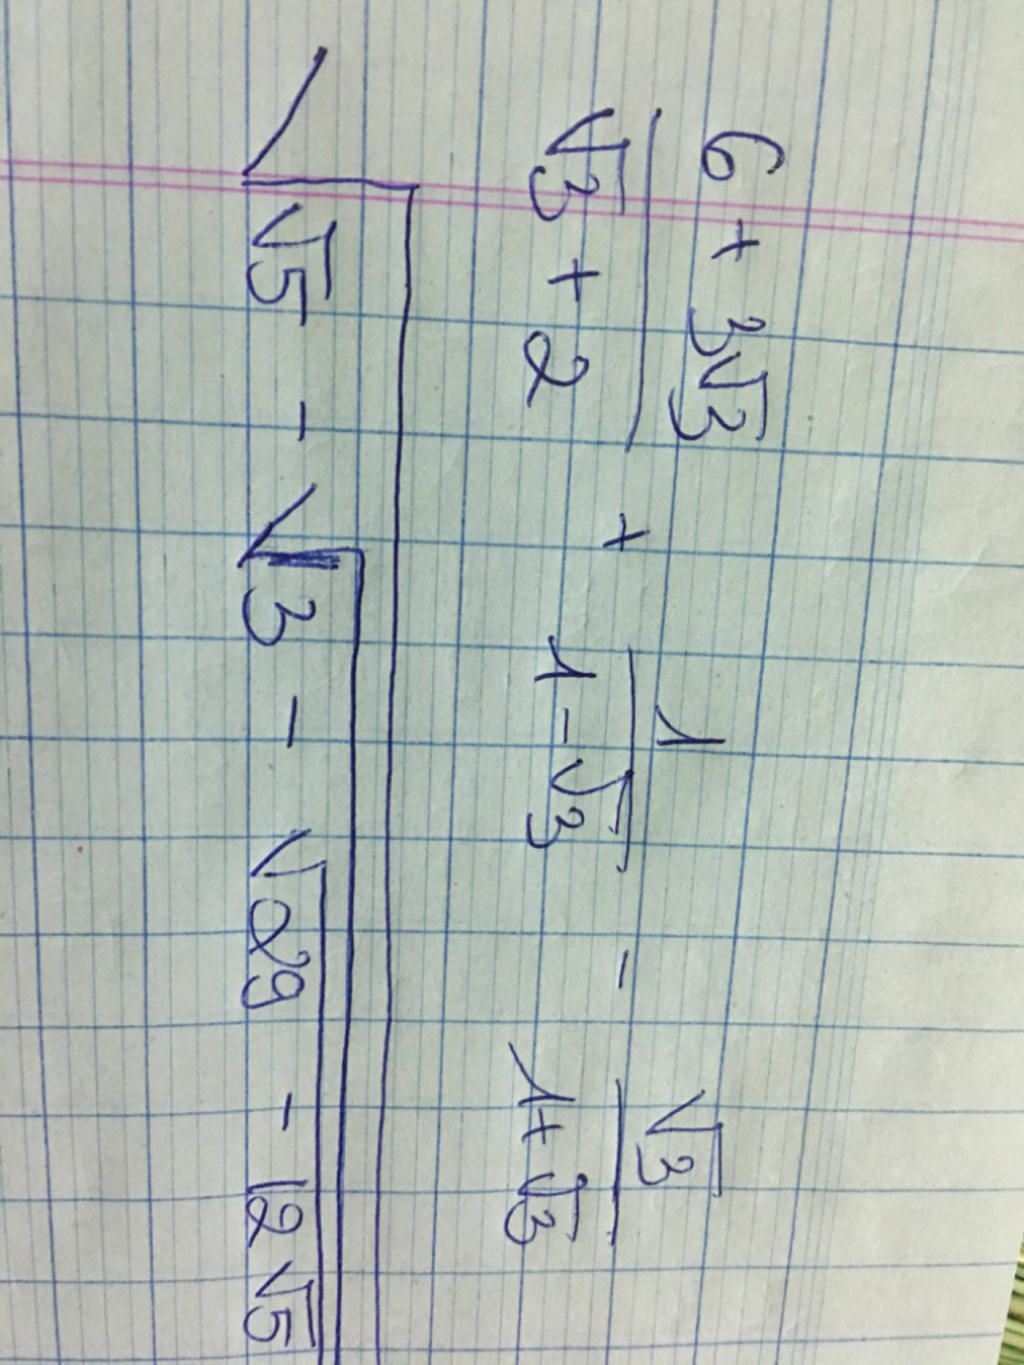 (6 + 3√3)/(√3 + 2) + 1/(1 - √3) - √3/(1 + √3)
√(√5 - √(3 - √(29 - 12√5)))